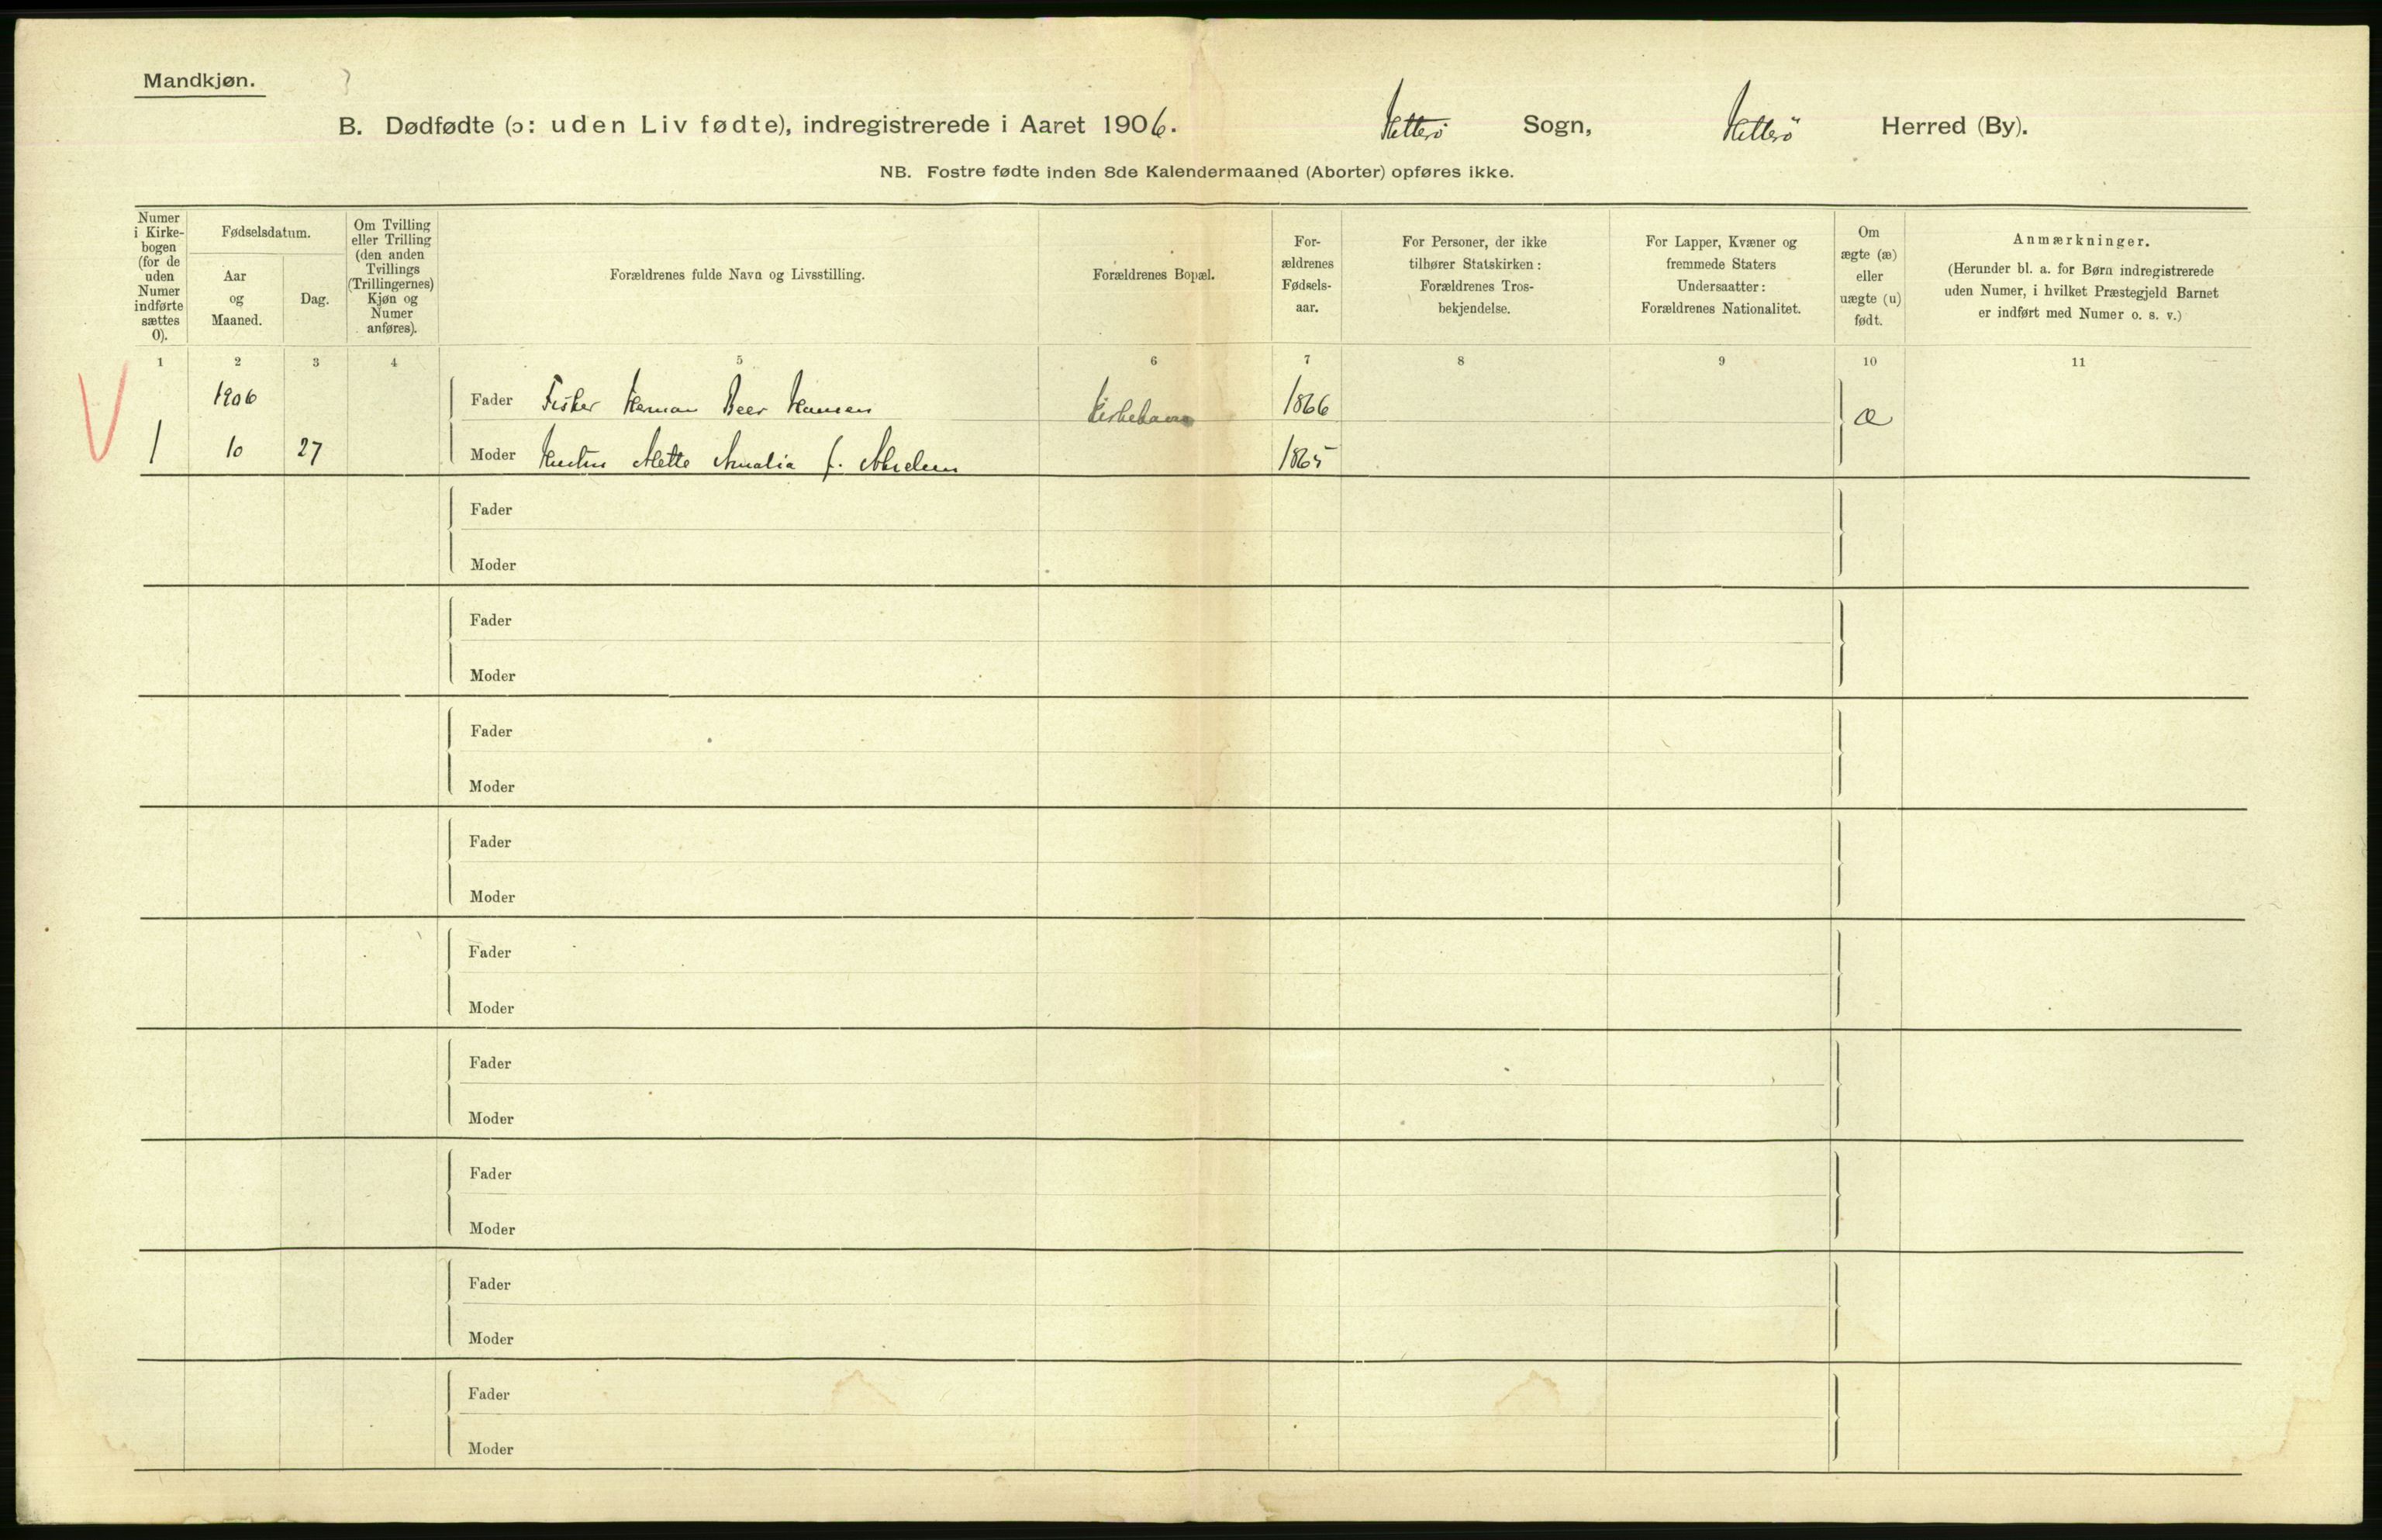 Mandkjøn.
B. Dødfødte (ɔ: uden Liv fødte), indregistrerede i Aaret 1906. Hitterö Sogn, Hitterö Herred (By).
NB. Fostre fødte inden 8de Kalendermaaned (Aborter) opføres ikke.
Numer i Kirke-bogen (for de uden Numer indførte sættes 0).
Fødselsdatum.
Aar og Maaned.
Dag.
Om Tvilling eller Trilling (den anden Tvillings (Trillingernes) Kjøn og Numer anføres).
Forældrenes fulde Navn og Livsstilling.
Forældrenes Bopæl.
For-ældrenes Fødsels-aar.
For Personer, der ikke tilhører Statskirken: Forældrenes Tros-bekjendelse.
For Lapper, Kvæner og fremmede Staters Undersaatter: Forældrenes Nationalitet.
Om ægte (æ) eller uægte (u) født.
Anmærkninger.
(Herunder bl. a. for Børn indregistrerede uden Numer, i hvilket Præstegjeld Barnet er indført med Numer o. s. v.)
1 2 3 4 5 6 7 8 9 10 11
1906 Fader Fisker Herman Beer Hansen Kirkehavn 1866 æ
1 10 27 Moder Hustru Mette Amalia f. 1865
Fader
Moder
Fader
Moder
Fader
Moder
Fader
Moder
Fader
Moder
Fader
Moder
Fader
Moder
Fader
Moder
Fader
Moder